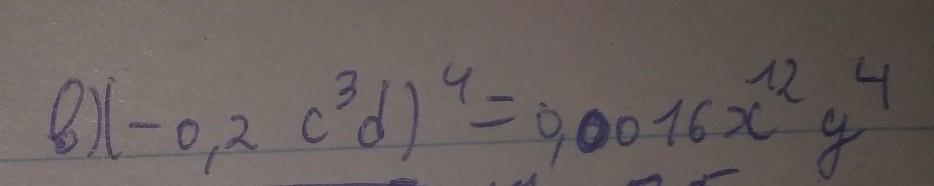 в) (-0,2 c³d)⁴ = 0,0016x¹² y⁴